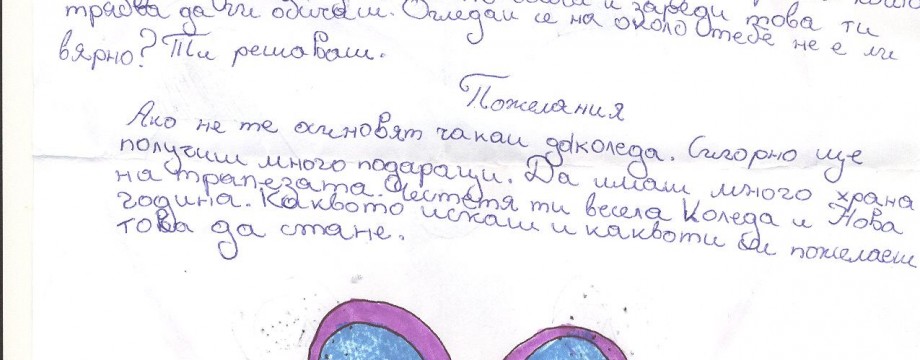 трябва да ги обичаш. Огледай се на около тебе не е ли
и зареди това ти
вярно? Ти решаваш.
Пожелания
Ако не те осиновят чакай доколеда. Сигорно ще
получиш много подараци. Да имаш много храна
на трапезата. Честетя ти весела Коледа и Нова
година. Каквото искаш и каквоти би пожелаеш
това да стане.